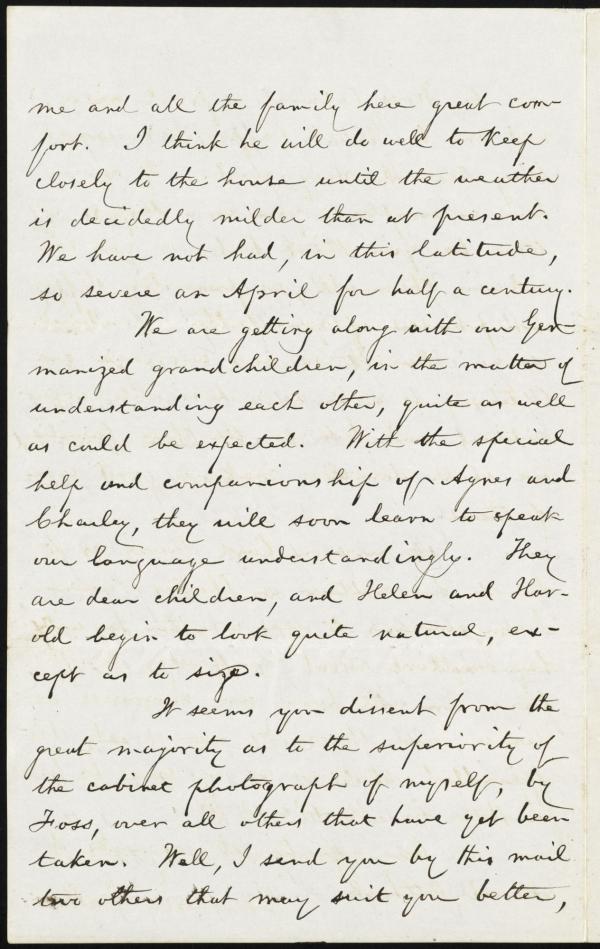 me and all the family here great com-
fort. I think he will do well to keep
closely to the house until the weather
is decidedly milder than at present.
We have not had, in this latitude,
so severe an April for half a century.
We are getting along with our Ger-
manized grandchildren, in the matter of
understanding each other, quite as well
as could be expected. With the special
help and companionship of Agnes and
Charley, they will soon learn to speak
our language understandingly. They
are dear children, and Helen and Har-
old begin to look quite natural, ex-
cept as to size.
It seems you dissent from the
great majority as to the superiority of
the cabinet photograph of myself, by
Foss, over all others that have yet been
taken. Well, I send you by this mail
two others that may suit you better,